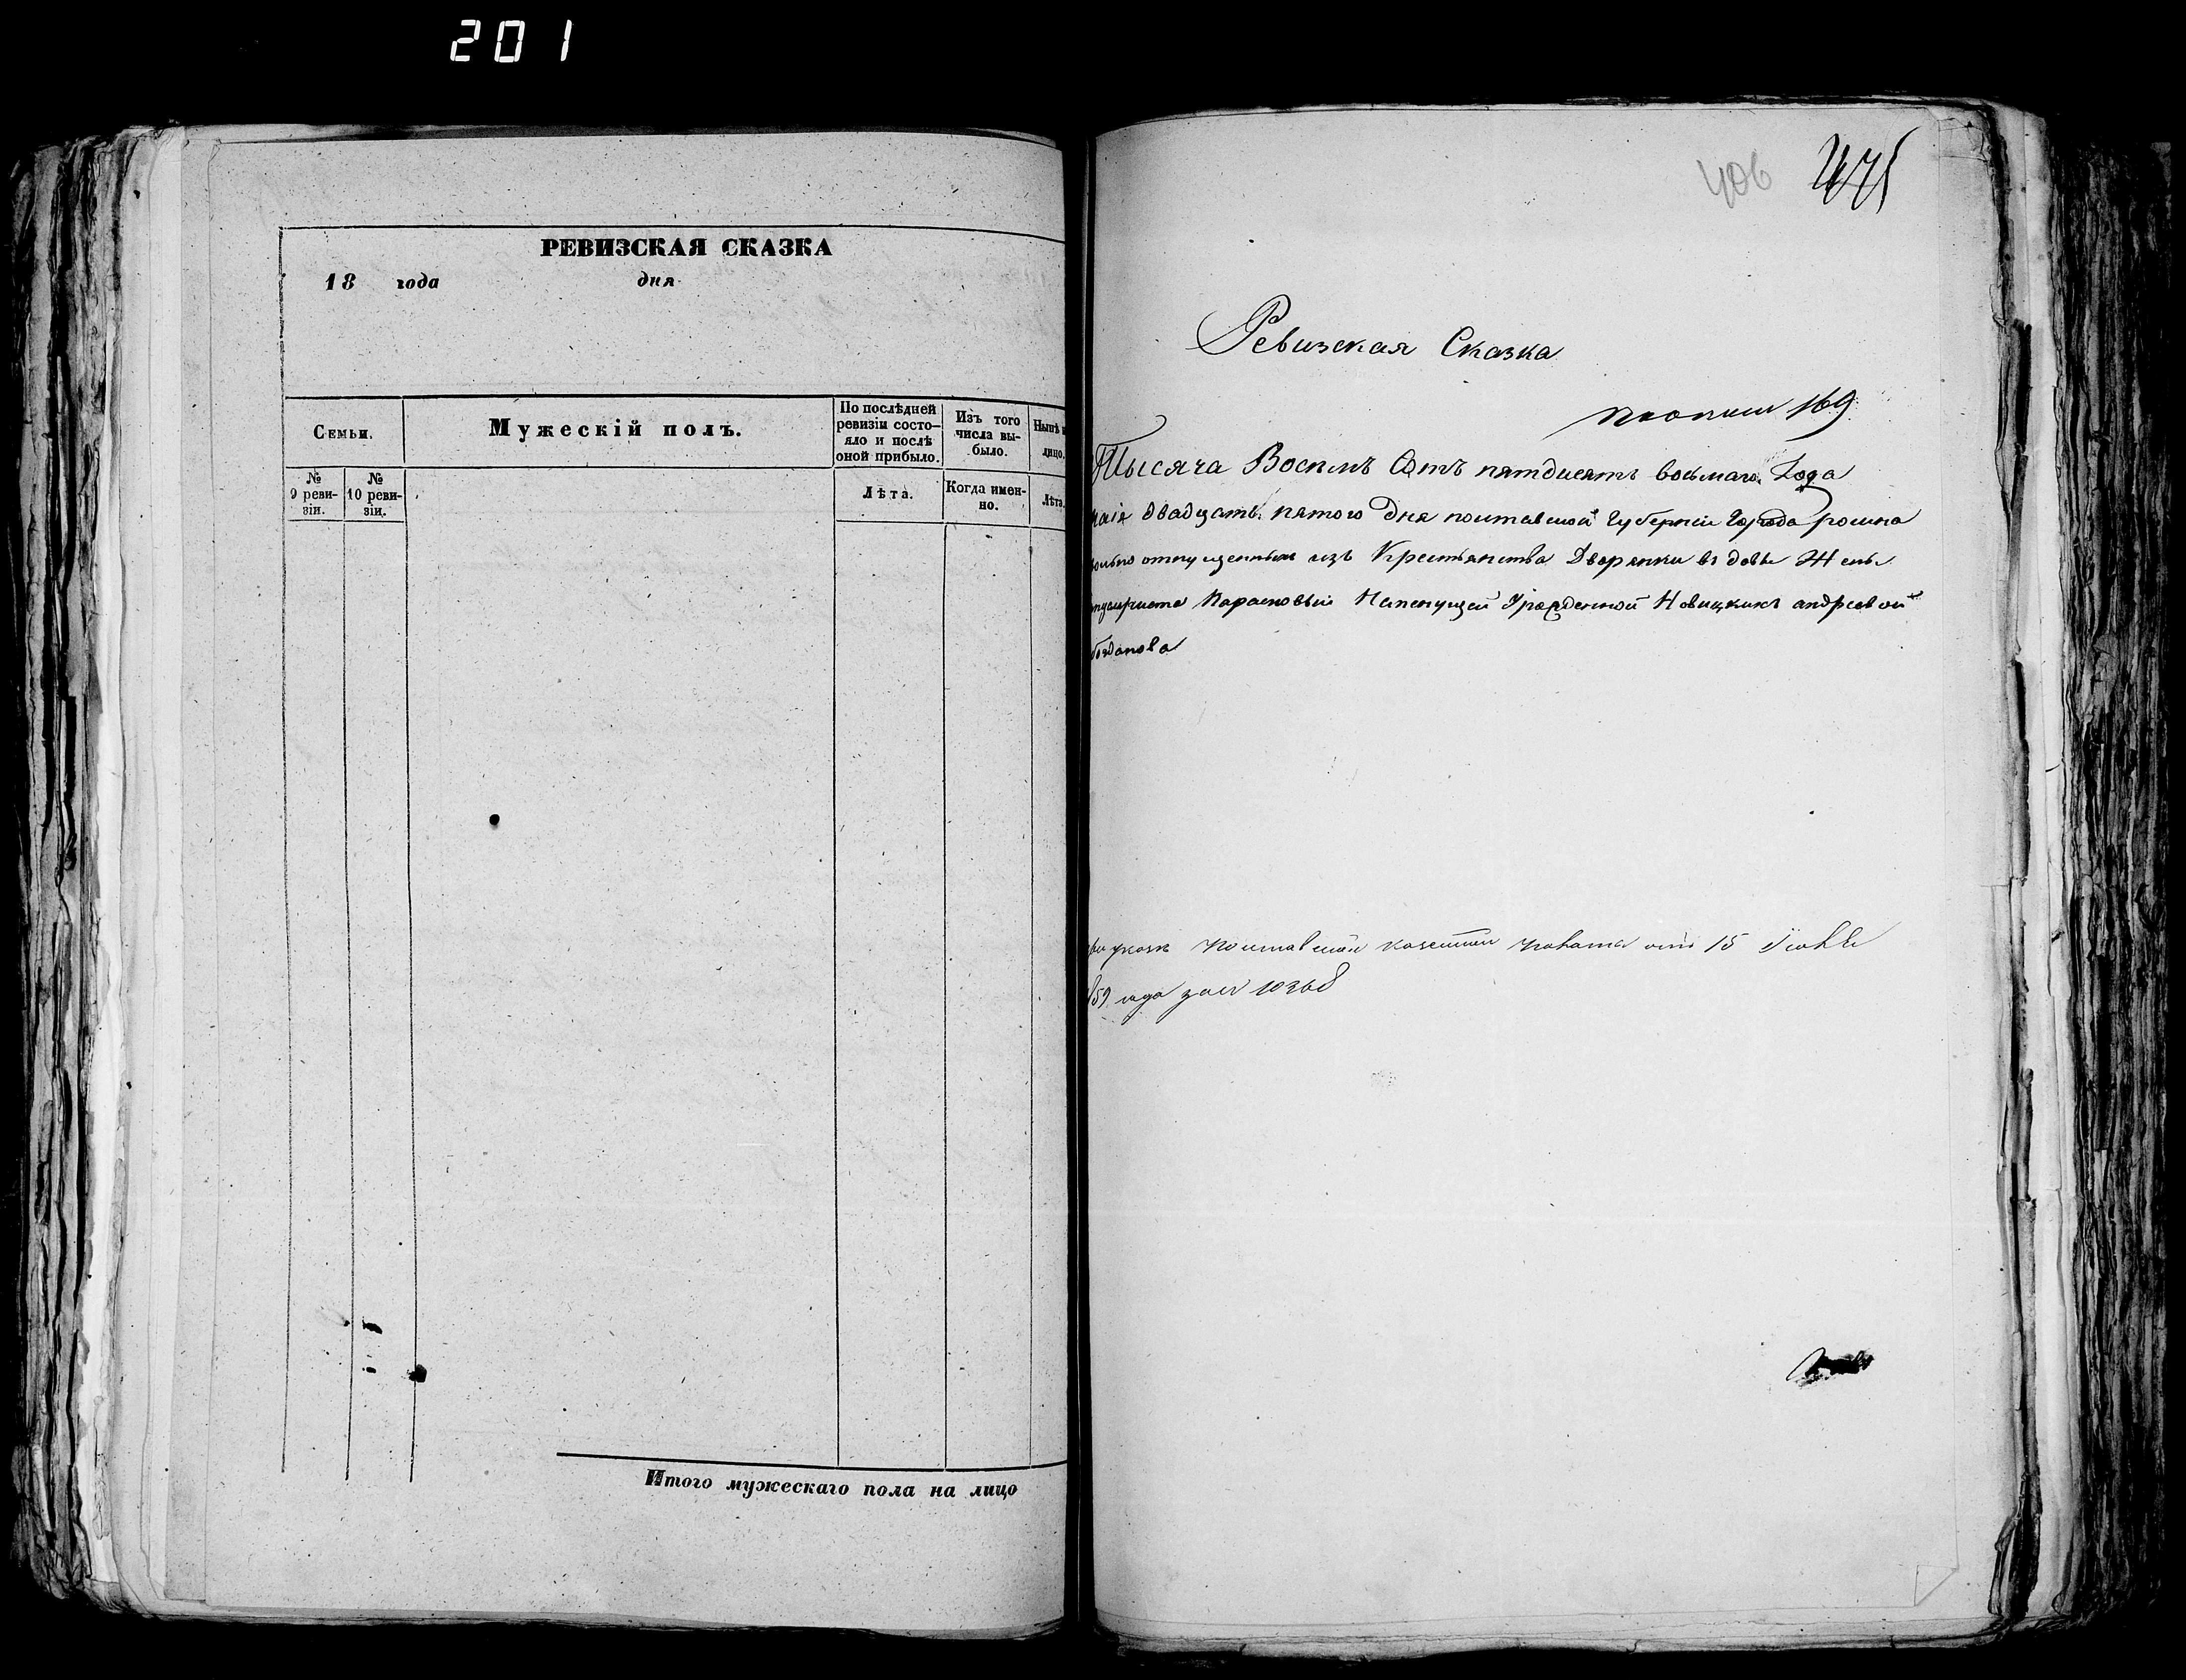 201
РЕВИЗСКАЯ СКАЗКА
18 года дня
Семьи.
Мужескій полъ.
По послѣдней ревизіи состо-
яло и послѣ оной прибыло.
Изъ того числа вы-
было.
Нынѣ
лицо.
№ 9 реви-
зіи.
№ 10 реви-
зіи.
Лѣта.
Когда имен-
но.
Лѣта
Итого мужескаго пола на лицо
406
Ревизская Сказка
169
Тысяча Восемъ Сотъ пятдисятъ восьмаго Года
маія двадцать пятого Дня полтавской Губерніи Города ромна
отпущенным изъ Крестьянства Дворянки вдовы Жены
Парасковьи Урожденной Новицкихъ андреевой
полтавской казенной палаты отъ 15
59 года 10368